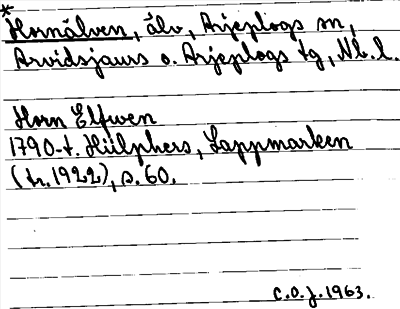 * Hornälven, älv, Arjeplogs sn,
Arvidsjaurs o. Arjeplogs tg, Nb. l.
Horn Elfwen
1790-t. Hülphers, Lappmarken
(tr. 1922), s. 60.
C.O.J. 1963.